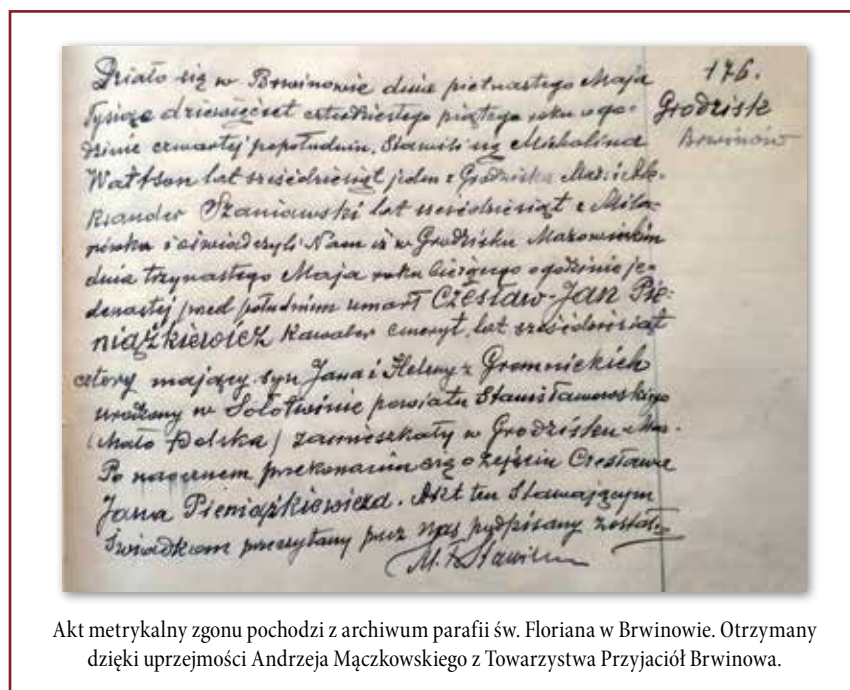 Działo się w Brwinowie dnia piętnastego Maja
tysiąc dziewięćset czterdziestego piątego roku o go-
dzinie czwartej popołudniu. Stawili się Michalina
Wattson lat sześćdziesiąt jeden z Grodziska Maz. i Ale-
ksander Szaniawski lat sześćdziesiąt z Mila-
nówka i oświadczyli Nam iż w Grodzisku Mazowieckim
dnia trzynastego Maja roku bieżącego o godzinie je-
denastej przed południem umarł Czesław-Jan Pie-
niążkiewicz kawaler emeryt, lat sześćdziesiąt
cztery mający syn Jana i Heleny z Gromnickich
urodzony w Sołotwinie powiatu Stanisławowskiego
(Mało Polska) zamieszkały w Grodzisku Maz.
Po naocznem przekonaniu się o zejściu Czesława
Jana Pieniążkiewicza. Akt ten Stawającym
Świadkom przeczytany przez nas podpisany został.
176.
Grodzisk
Brwinów
Akt metrykalny zgonu pochodzi z archiwum parafii św. Floriana w Brwinowie. Otrzymany
dzięki uprzejmości Andrzeja Mączkowskiego z Towarzystwa Przyjaciół Brwinowa.